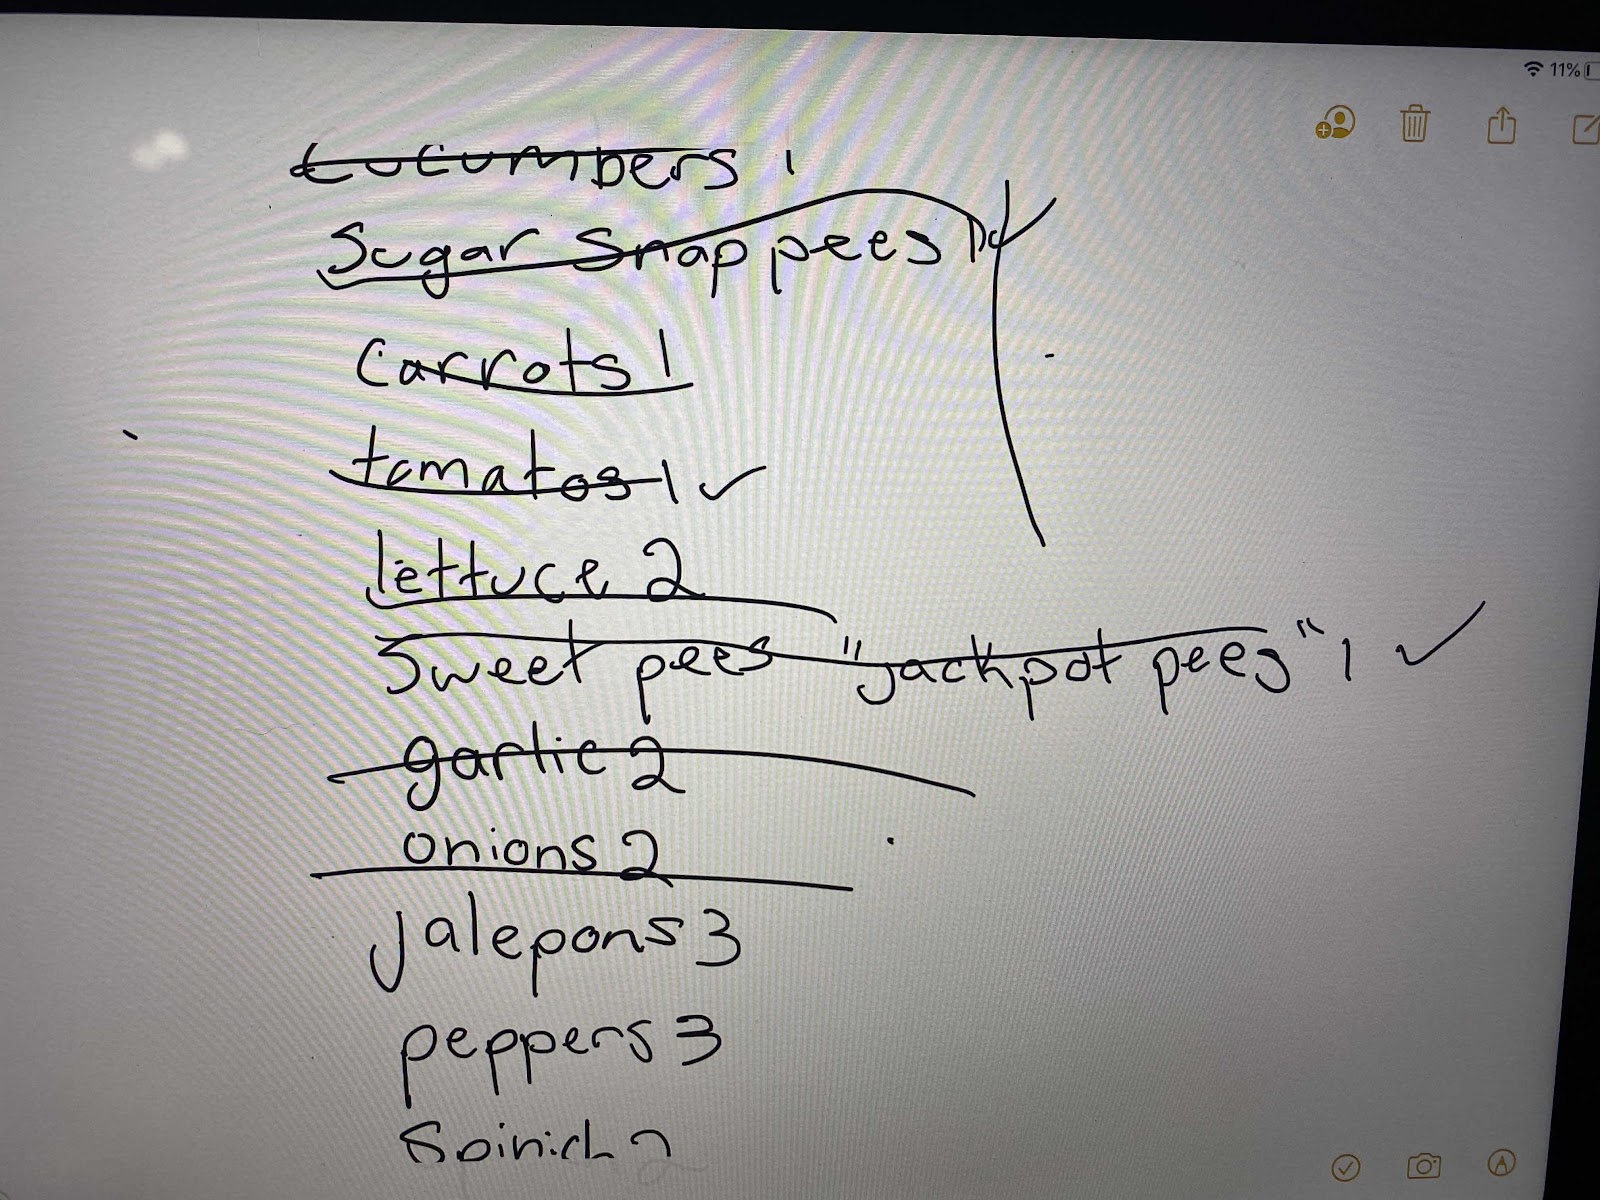 11%
Cucumbers 1
Sugar Snap pees 1
Carrots 1
tomatos 1 ✓
lettuce 2
Sweet pees "jackpot pees" 1 ✓
garlic 2
onions 2
Jalepons 3
peppers 3
Spinich 2